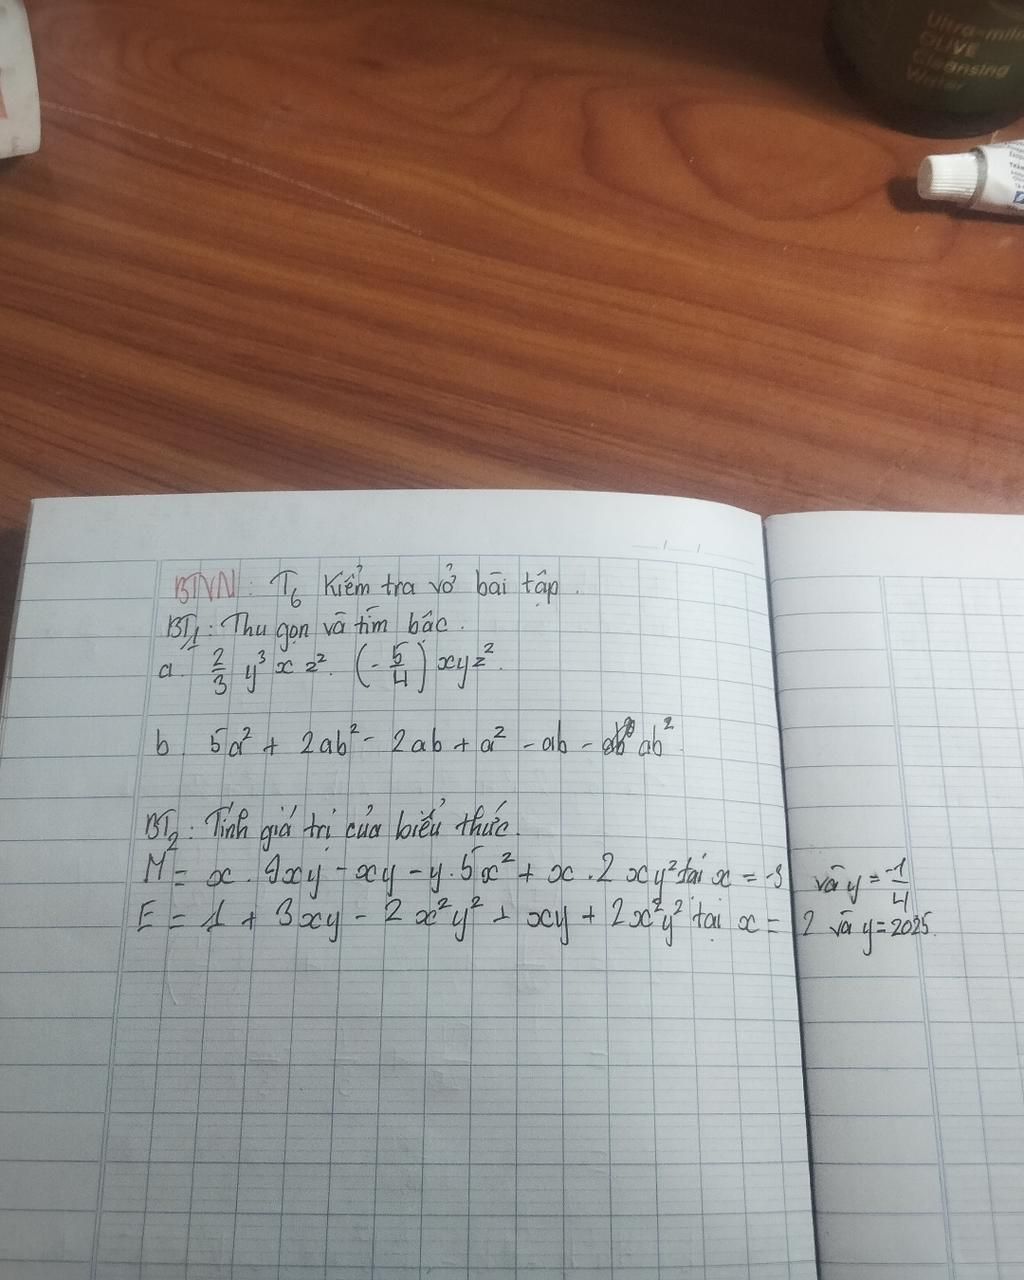 Ultra-mild
OLIVE
Cleansing
Water
BTVN: T₆ Kiểm tra vở bài tập.
BT₁: Thu gọn và tìm bậc.
a. 2/3 y³ x z². (-5/4) xyz².
b. 5a² + 2ab² - 2ab + a² - ab - ab²
BT₂: Tính giá trị của biểu thức.
M = x . 9xy - xy - y . 5x² + x . 2xy² tại x = -3 và y = -1/4
E = 1 + 3xy - 2x²y² + xy + 2x²y² tại x = 2 và y = 2025.